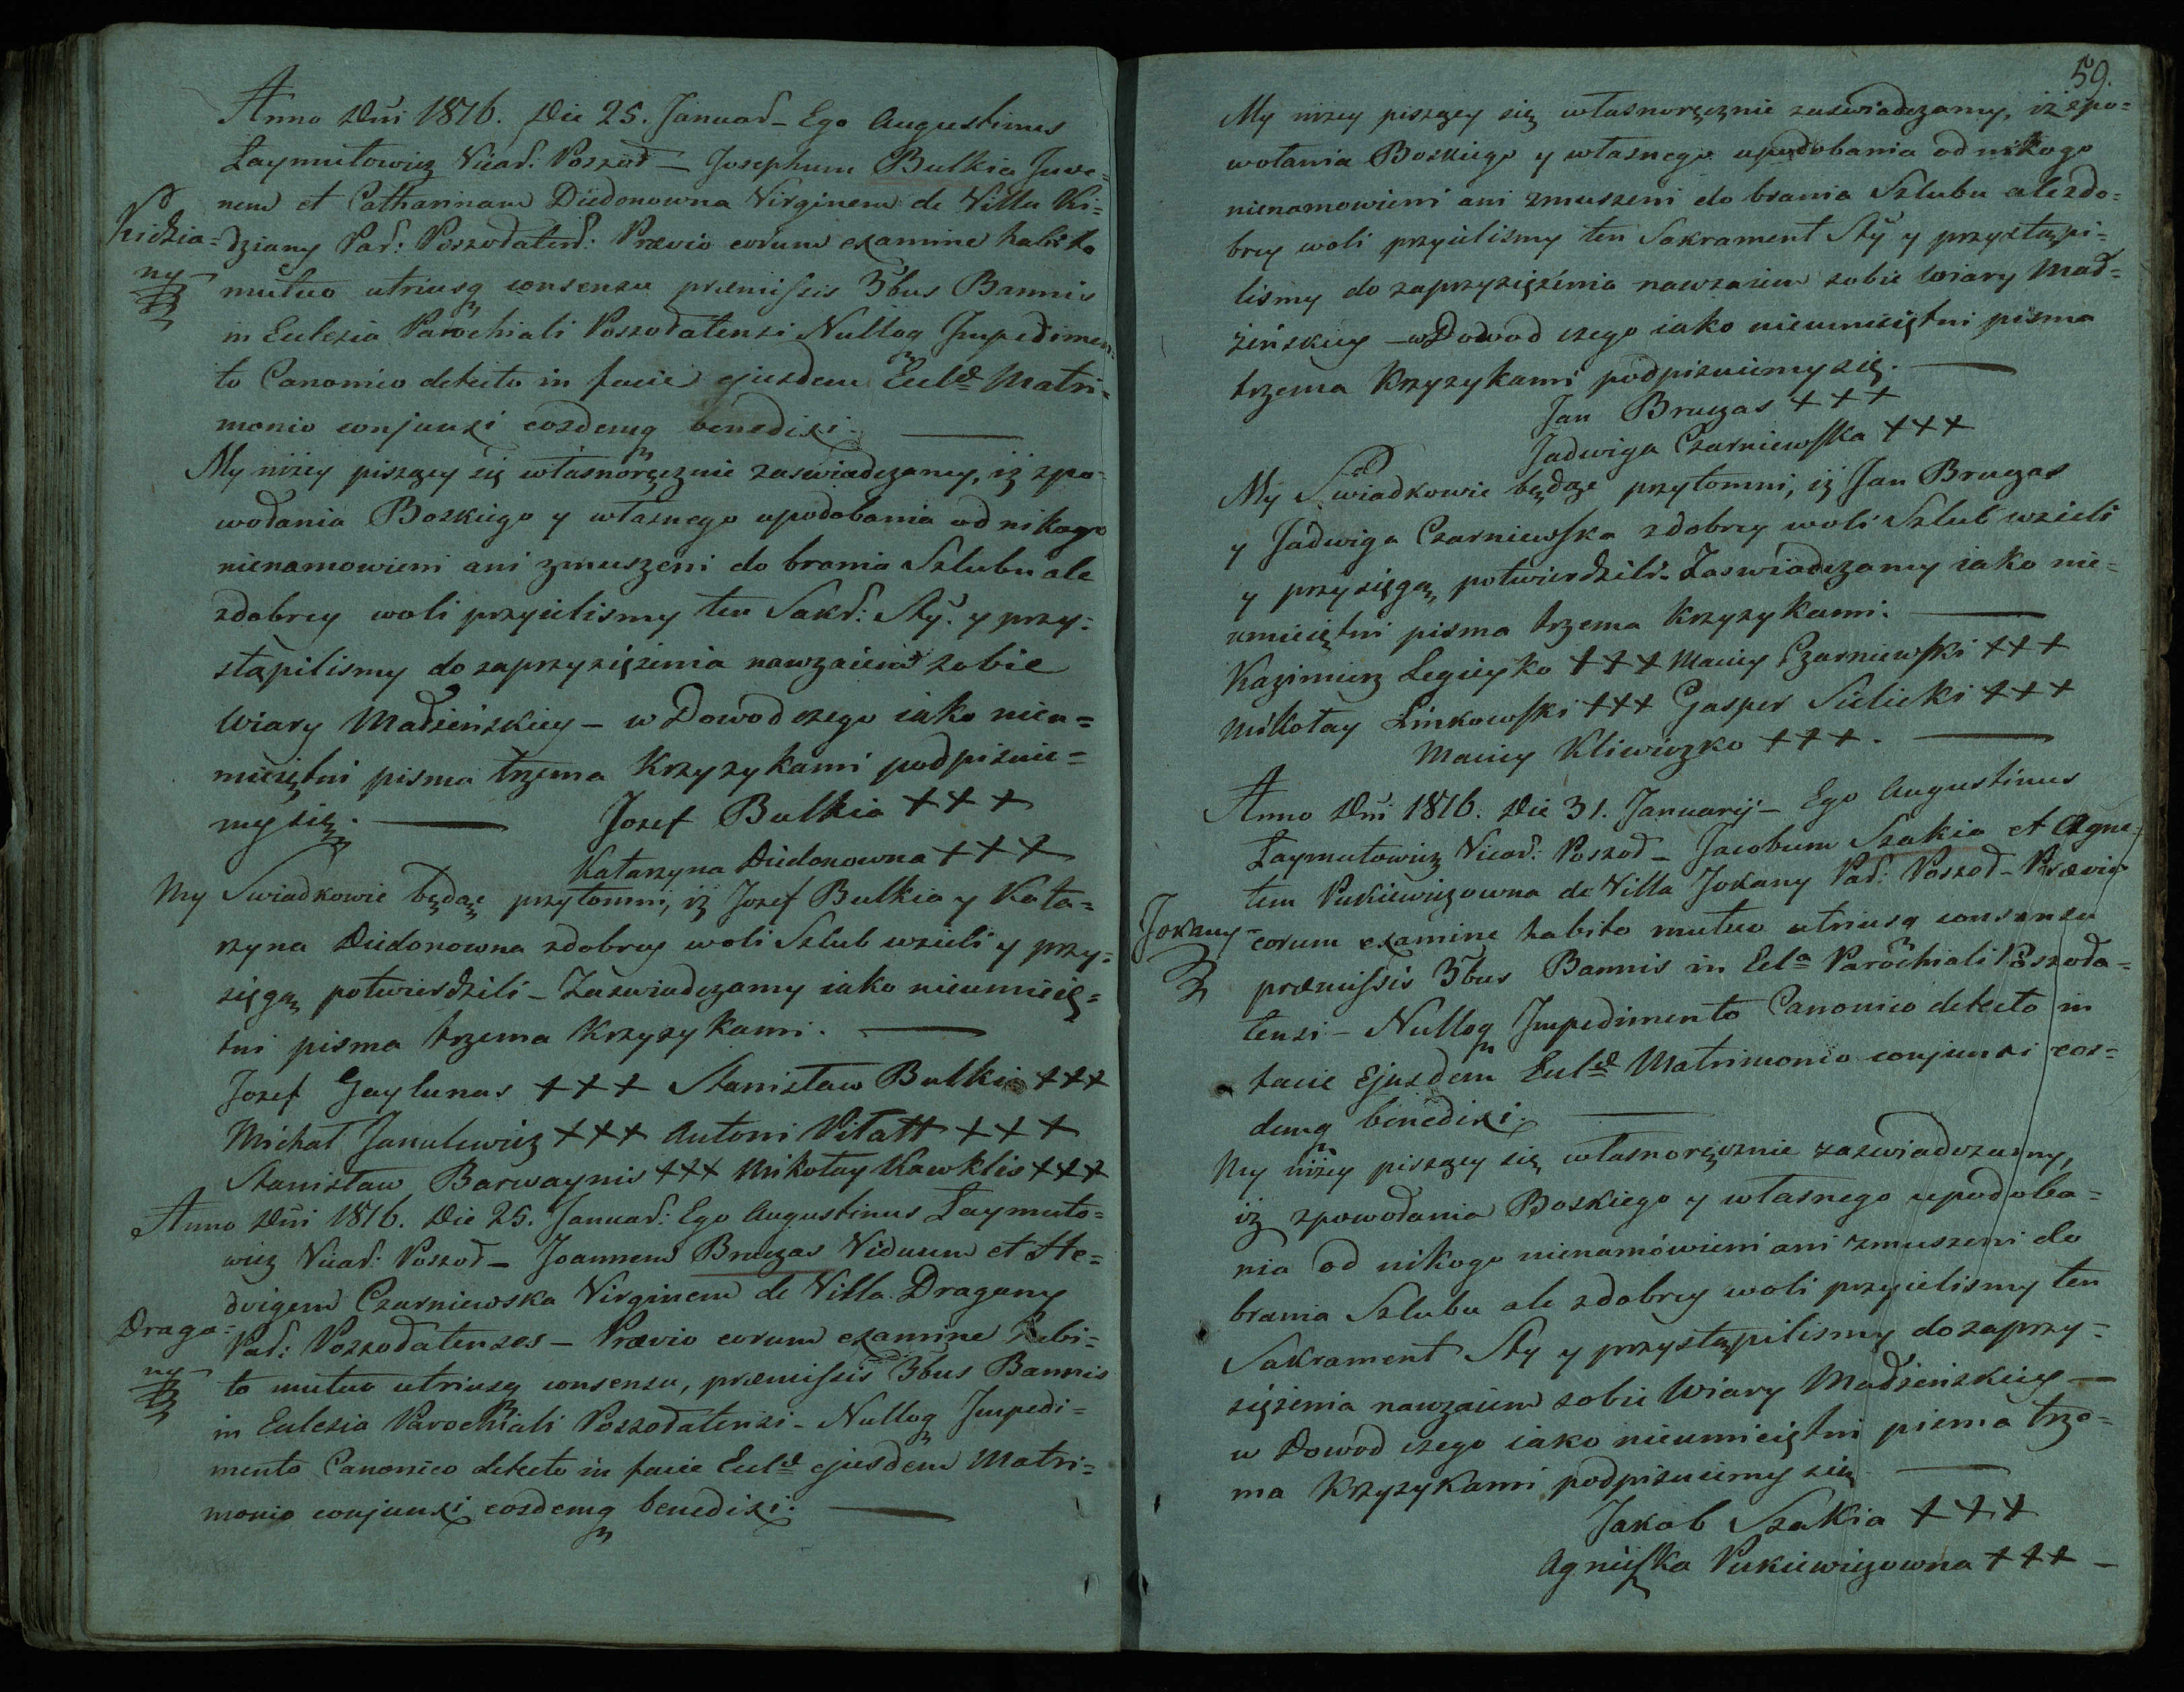 Anno Dni 1816. Die 25. Januar. Ego Augustinus
Laymutowicz Vicar: Poszoł — Josephum Bulkia Juve=
nem et Catharinam Dzidonowna Virginem de Villa Ki=
Kidzia=
ny
dziany Par: Poszołaten: Prævio eorum examine habito
mutuo utriusq consensu præmissis 3bus Bannis
in Eclesia Parochiali Poszołatensi Nulloq Impedimen=
to Canonico detecto in facie ejusdem Ecl. Matri=
monio conjunxi eosdemq benedixi.
My niżey piszący się własnoręcznie zaswiadczamy, iż zpo=
wołania Boskiego y własnego upodobania od nikogo
nienamowieni ani zmuszeni do brania Szlubu ale
zdobrey woli przyielismy ten Sakr: Sty. y przy=
stąpilismy do zaprzysiężenia nawzaiem sobie
Wiary Małżeńskiey — w Dowod czego iako nieu=
mieiętni pisma trzema Krzyzykami podpisuie=
my się. — Jozef Bulkia +++
Katarzyna Dzidonowna +++
My Swiadkowie będąc przytomni, iż Jozef Bulkia y Kata=
rzyna Dzidonowna zdobrey woli Szlub wzieli y przy=
sięgą potwierdzili — Zaswiadczamy iako nieumieię=
tni pisma trzema Krzyzykami. —
Jozef Gaylunas +++ Stanisław Bulkia +++
Michał Janulewicz +++ Antoni Pitatt +++
Stanisław Barwaynis +++ Mikołay Kawklis +++
Anno Dni 1816. Die 25. Januar: Ego Augustinus Laymuto=
wicz Vicar: Poszoł — Joannem Bruzas Viduum et He=
dvigem Czarniewska Virginem de Villa Dragany
Draga=
ny
Par: Poszołatenses — Prævio eorum examine habi=
to mutuo utriusq consensu, præmissis 3bus Bannis
in Eclesia Parochiali Poszołatensi — Nulloq Impedi=
mento Canonico detecto in facie Ecl. ejusdem Matri=
monio conjunxi eosdemq benedixi. —
59.
My niżey piszący się własnoręcznie zaswiadczamy, iż zpo=
wołania Boskiego y własnego upodobania od nikogo
nienamowieni ani zmuszeni do brania Szlubu ale zdo=
brey woli przyielismy ten Sakrament Sty y przystąpi=
lismy do zaprzysiężenia nawzaiem sobie Wiary Mał=
żeńskiey — w Dowod czego iako nieumieiętni pisma
trzema Krzyzykami podpisuiemy się. —
Jan Bruzas +++
Jadwiga Czarniewska +++
My Swiadkowie będąc przytomni, iż Jan Bruzas
y Jadwiga Czarniewska zdobrey woli Szlub wzieli
y przysięgą potwierdzili. Zaswiadczamy iako nie=
umieiętni pisma trzema Krzyzykami. —
Kazimierz Legieyko +++ Maciey Czarniewski +++
Mikołay Linkowski +++ Gasper Sielicki +++
Maciey Kliwiczko +++. —
Anno Dni 1816. Die 31. Januarij — Ego Augustinus
Laymutowicz Vicar: Poszoł — Jacobum Szakia et Agne=
tem Pukiewiczowna de Villa Jokany Par: Poszoł — Prævio
Jokany=
eorum examine habito mutuo utriusq consensu
præmissis 3bus Bannis in Ecla Parochiali Poszoła=
tensi — Nulloq Impedimento Canonico detecto in
facie Ejusdem Ecl. Matrimonio conjunxi eos=
demq benedixi. —
My niżey piszący się własnoręcznie zaswiadczamy,
iż zpowołania Boskiego y własnego upodoba=
nia od nikogo nienamówieni ani zmuszeni do
brania Szlubu ale zdobrey woli przyielismy ten
Sakrament Sty y przystąpilismy do zaprzy=
siężenia nawzaiem sobie Wiary Małżeńskiey —
w Dowod czego iako nieumieiętni pisma trze=
ma Krzyzykami podpisuiemy się —
Jakob Szakia +++
Agnieszka Pukiewiczowna +++ —